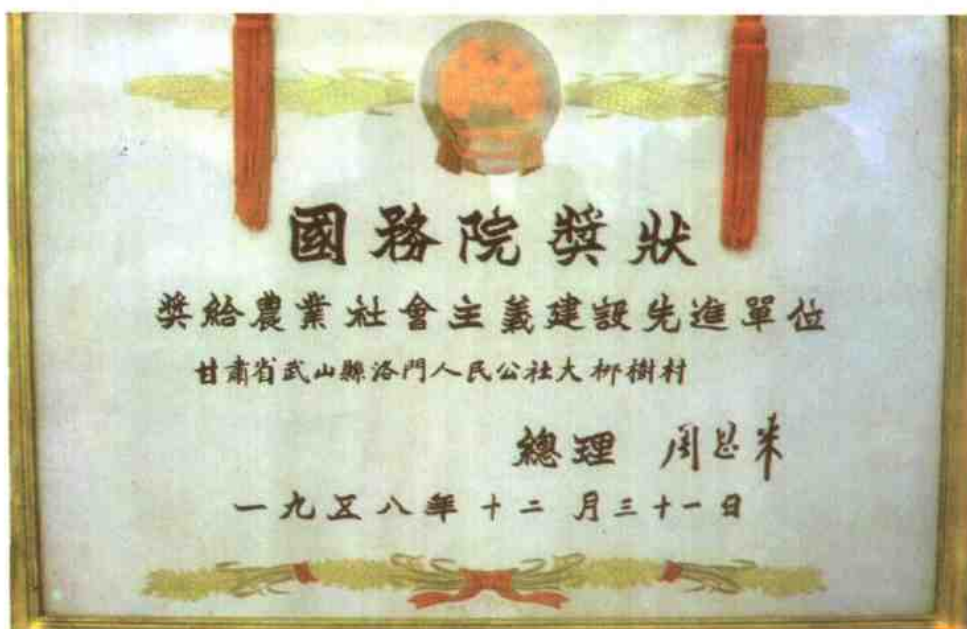 國務院獎狀
獎給農業社會主義建設先進單位
甘肅省武山縣洛門人民公社大柳樹村
總理 周恩來
一九五八年十二月三十一日